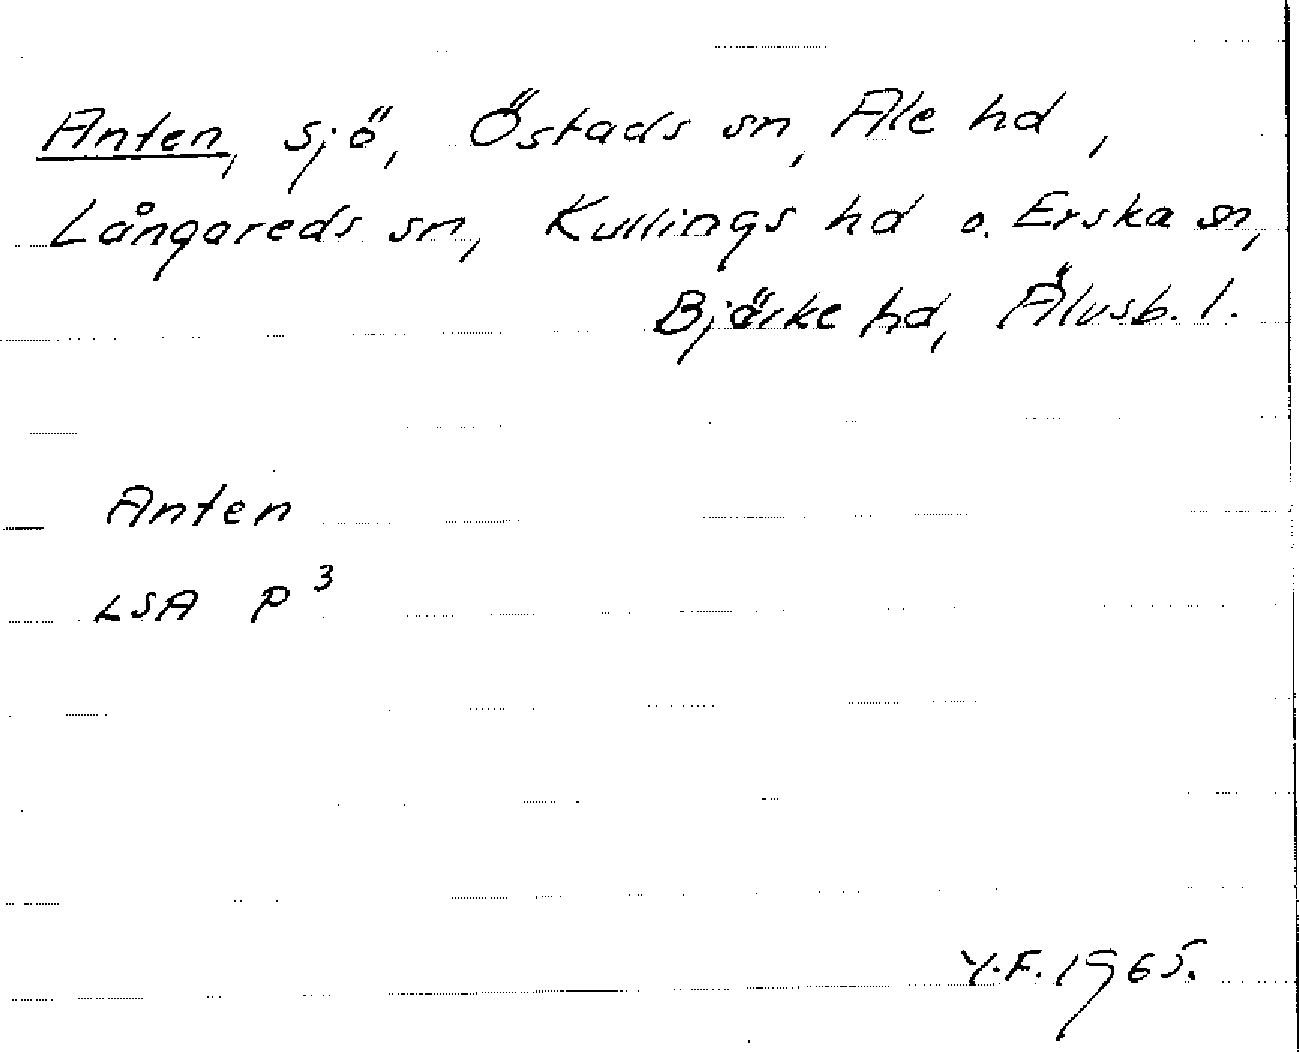 Anten, sjö, Östads sn, Ale hd,
Långareds sn, Kullings hd o. Erska sn,
Bjärke hd, Älvsb. l.
Anten
LSA P 3
Y.F. 1965.